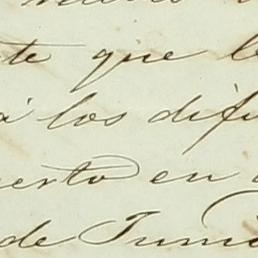 te que le
á los difu
uerto en
de Juni